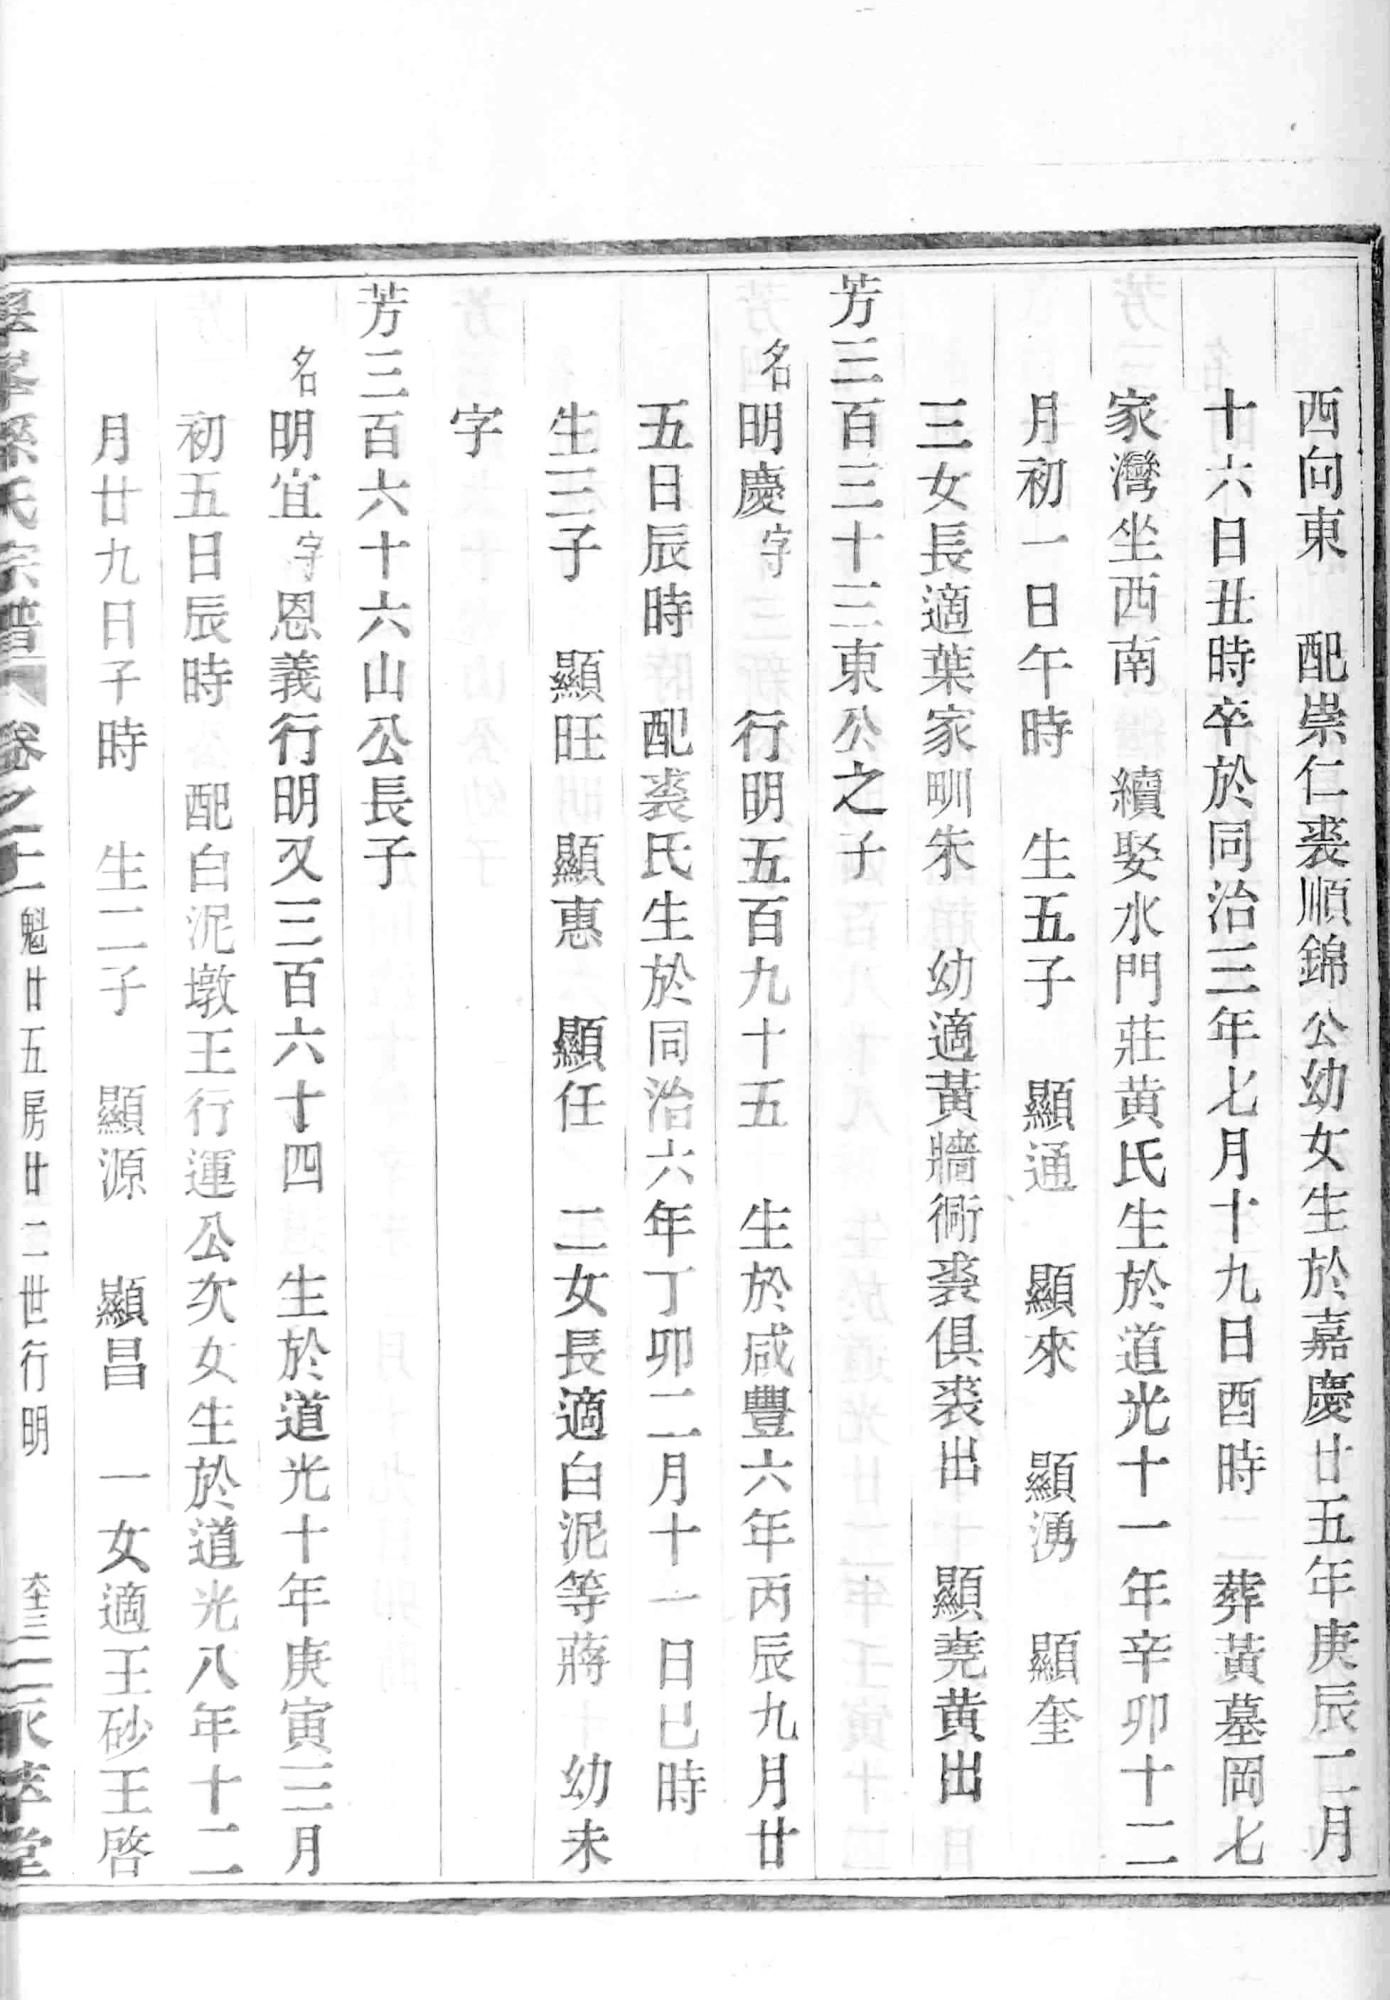 西向東　配崇仁裘順錦公幼女生於嘉慶廿五年庚辰二月
十六日丑時卒於同治三年七月十九日酉時　葬黃墓岡七
家灣坐西南　續娶水門莊黄氏生於道光十一年辛卯十二
月初一日午時　生五子　顯通　顯來　顯湧　顯奎
三女長適葉家甽朱　幼適黃牆衕裘俱裘出　顯堯黄出
芳三百三十三東公之子
名明慶字　行明五百九十五　生於咸豐六年丙辰九月廿
五日辰時　配裘氏生於同治六年丁卯二月十一日巳時
生三子　顯旺　顯惠　顯任　二女長適白泥等蔣　幼未
字
芳三百六十六山公長子
名明宜字恩義行明又三百六十四　生於道光十年庚寅三月
初五日辰時　配白泥墩王行運公次女生於道光八年十二
月廿九日子時　生二子　顯源　顯昌　一女適王砂王啓
氏宗譜　卷之十二　魁廿五房廿二世行明　堂